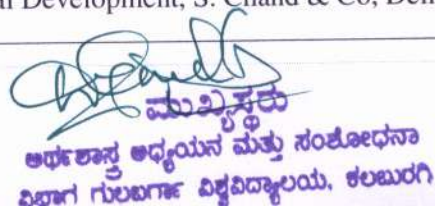 al Development, S. Chand & Co, Del
ಮುಖ್ಯಸ್ಥರು
ಅರ್ಥಶಾಸ್ತ್ರ ಅಧ್ಯಯನ ಮತ್ತು ಸಂಶೋಧನಾ
ವಿಭಾಗ ಗುಲಬರ್ಗಾ ವಿಶ್ವವಿದ್ಯಾಲಯ, ಕಲಬುರಗಿ